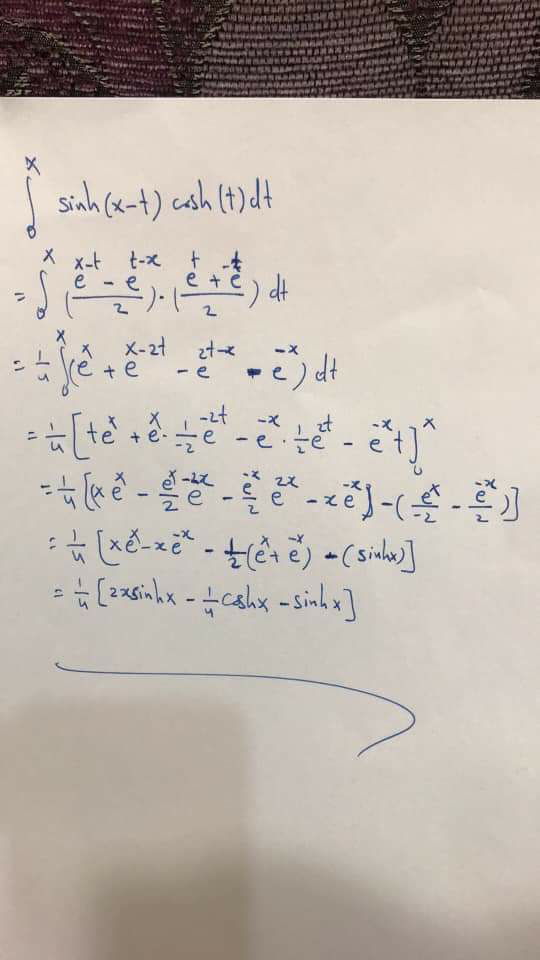 ∫₀ˣ sinh(x-t) cosh(t) dt
= ∫₀ˣ ((e^(x-t) - e^(t-x))/2) · ((e^t + e^(-t))/2) dt
= 1/4 ∫₀ˣ (e^x + e^(x-2t) - e^(2t-x) - e^(-x)) dt
= 1/4 [te^x + e^x · 1/-2 e^(-2t) - e^(-x) · 1/2 e^(2t) - e^(-x) t]₀ˣ
= 1/4 [(xe^x - e^x/2 e^(-2x) - e^(-x)/2 e^(2x) - xe^(-x)) - (e^x/-2 - e^(-x)/2)]
= 1/4 [xe^x - xe^(-x) - 1/2 (e^x + e^(-x)) - (sinhx)]
= 1/4 [2xsinhx - 1/4 coshx - sinhx]